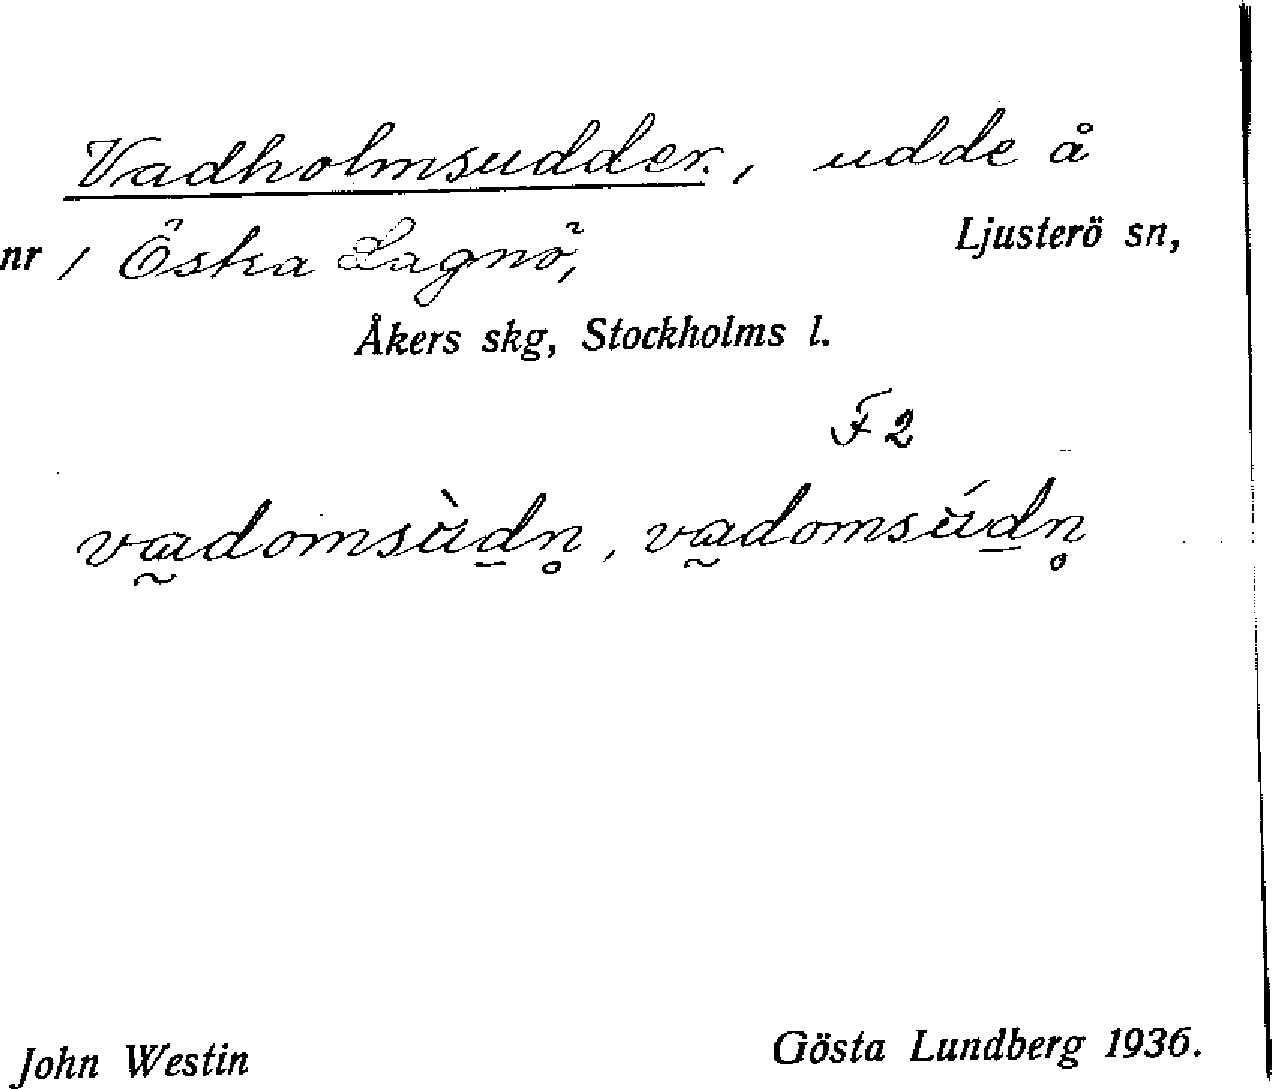 Vadholmsudden, udde å
nr 1 Östra Lagnö, Ljusterö sn,
Åkers skg, Stockholms l.
F2
va̰domsù̈d̲n̥, va̰domsǘd̲n̥
John Westin Gösta Lundberg 1936.